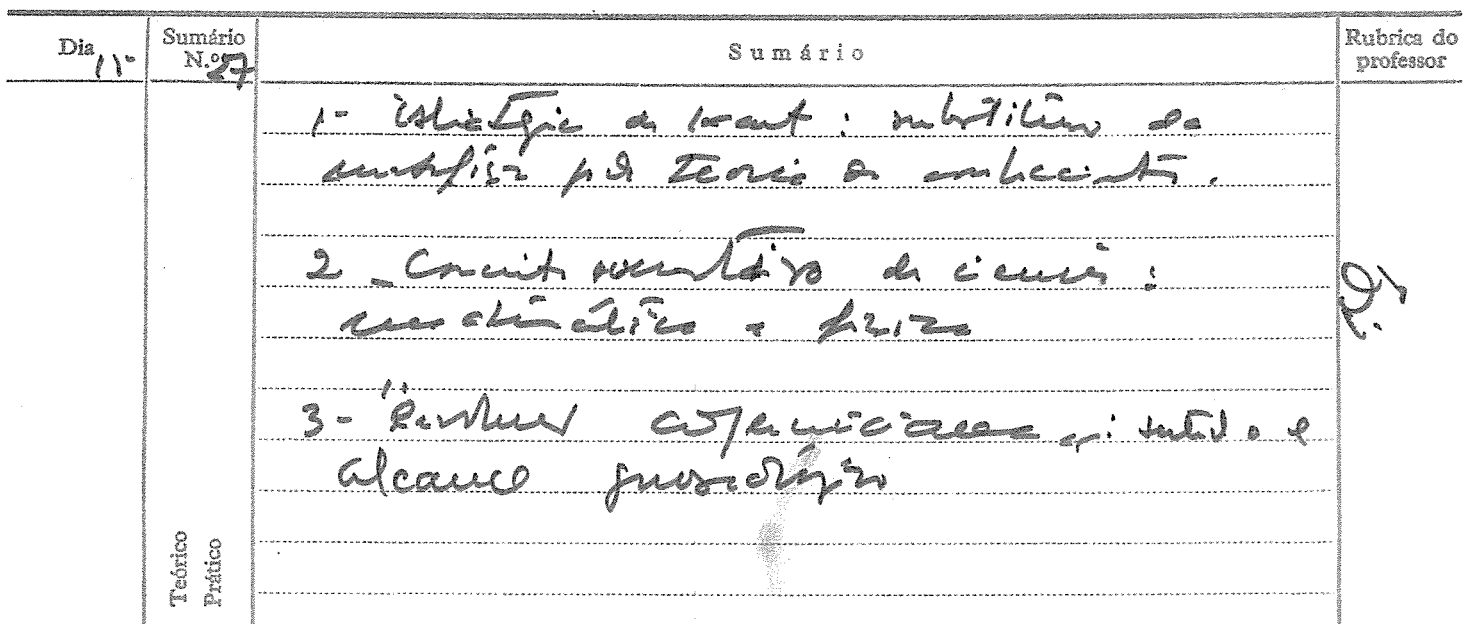 Dia 11
Sumário N.º 27
Sumário
Rubrica do professor
1- Estratégia de Kant : substituição da
metafísica pela Teoria do conhecimento.
2 - Conceito de ciência :
matemática e física
3- "Revolução copernicana" : sentido e
alcance gnoseológico
Teórico
Prático